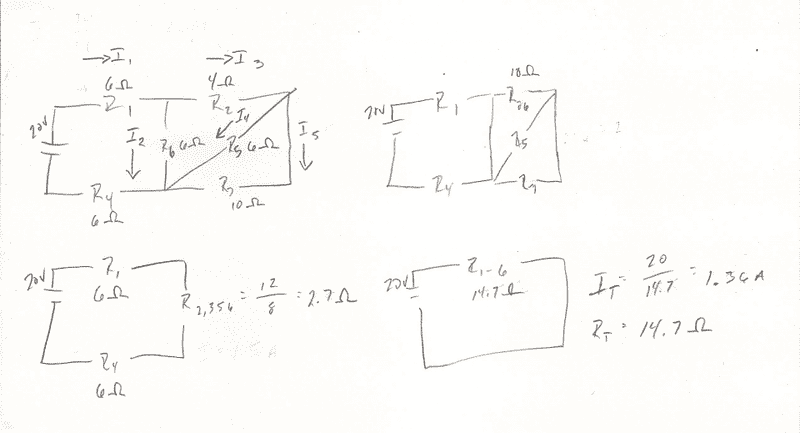 →I₁ →I₃
6Ω 4Ω
R₁ R₂
20V I₂ R₆ 6Ω I₄ R₅ 6Ω I₅
R₄ R₃
6Ω 10Ω
10Ω
20V R₁ R₂₆
R₅
R₄ R₃
20V R₁
6Ω
R₂,₃₅₆ = 12/8 = 2.7Ω
R₄
6Ω
20V R₁₋₆
14.7Ω
I_T = 20/14.7 = 1.36A
R_T = 14.7Ω